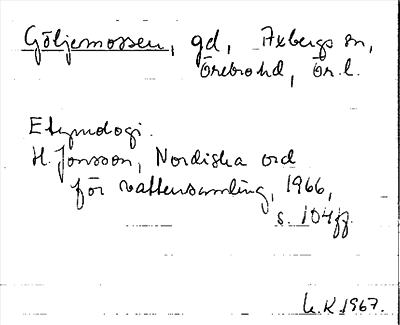 Göljemossen, gd, Axbergs sn,
Örebro hd, Ör. l.
Etymologi.
H. Jonsson, Nordiska ord
för vattensamling, 1966,
s. 104ff.
L. K. 1967.